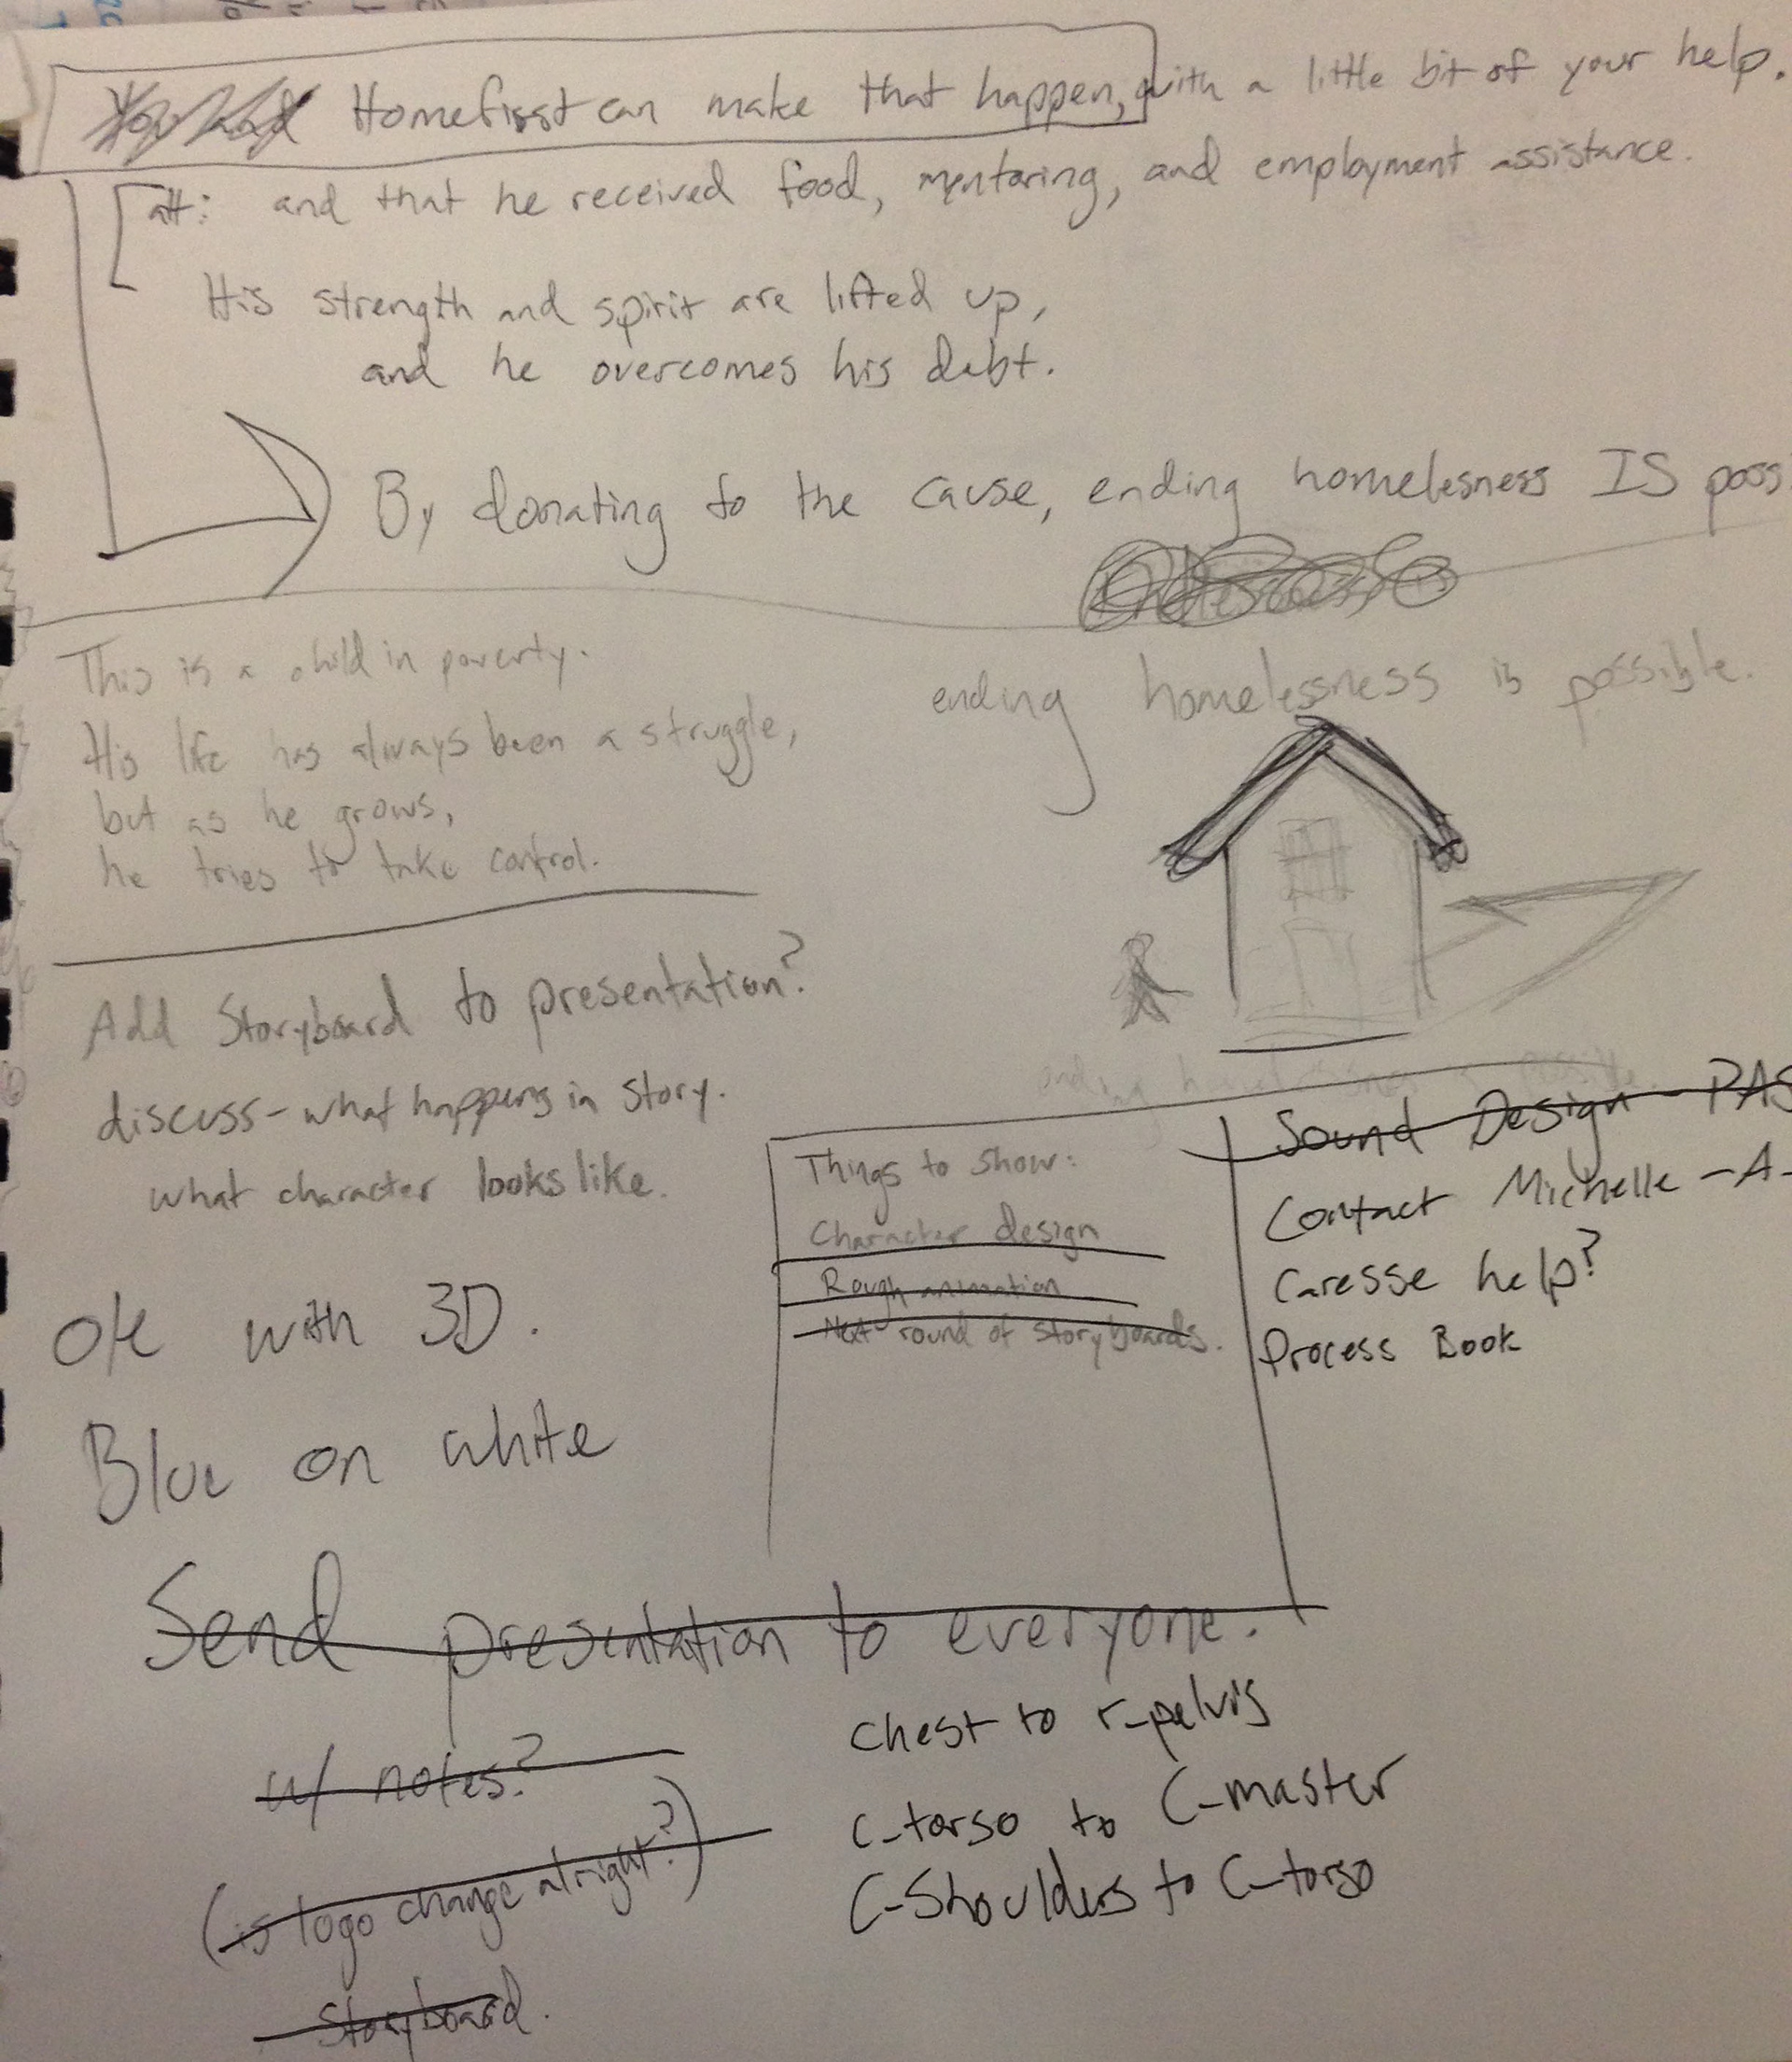 Homefirst can make that happen, with a little bit of your help.
alt: and that he received food, mentoring, and employment assistance.
His strength and spirit are lifted up,
and he overcomes his debt.
By donating to the cause, ending homelesness IS poss
This is a child in poverty.
His life has always been a struggle,
but as he grows,
he tries to take control.
ending homelessness is possible.
Add Storyboard to presentation?
discuss - what happens in story.
what character looks like.
ending homelessness is possible.
Things to show:
Character design
Rough animation
Next round of storyboards.
Sound Design - PAS
Contact Michelle - A -
Caresse help?
Process Book
OK with 3D.
Blue on white
Send presentation to everyone.
w/ notes?
(is logo change alright?)
Storyboard.
Chest to r-pelvis
C-torso to C-master
C-Shoulders to C-torso